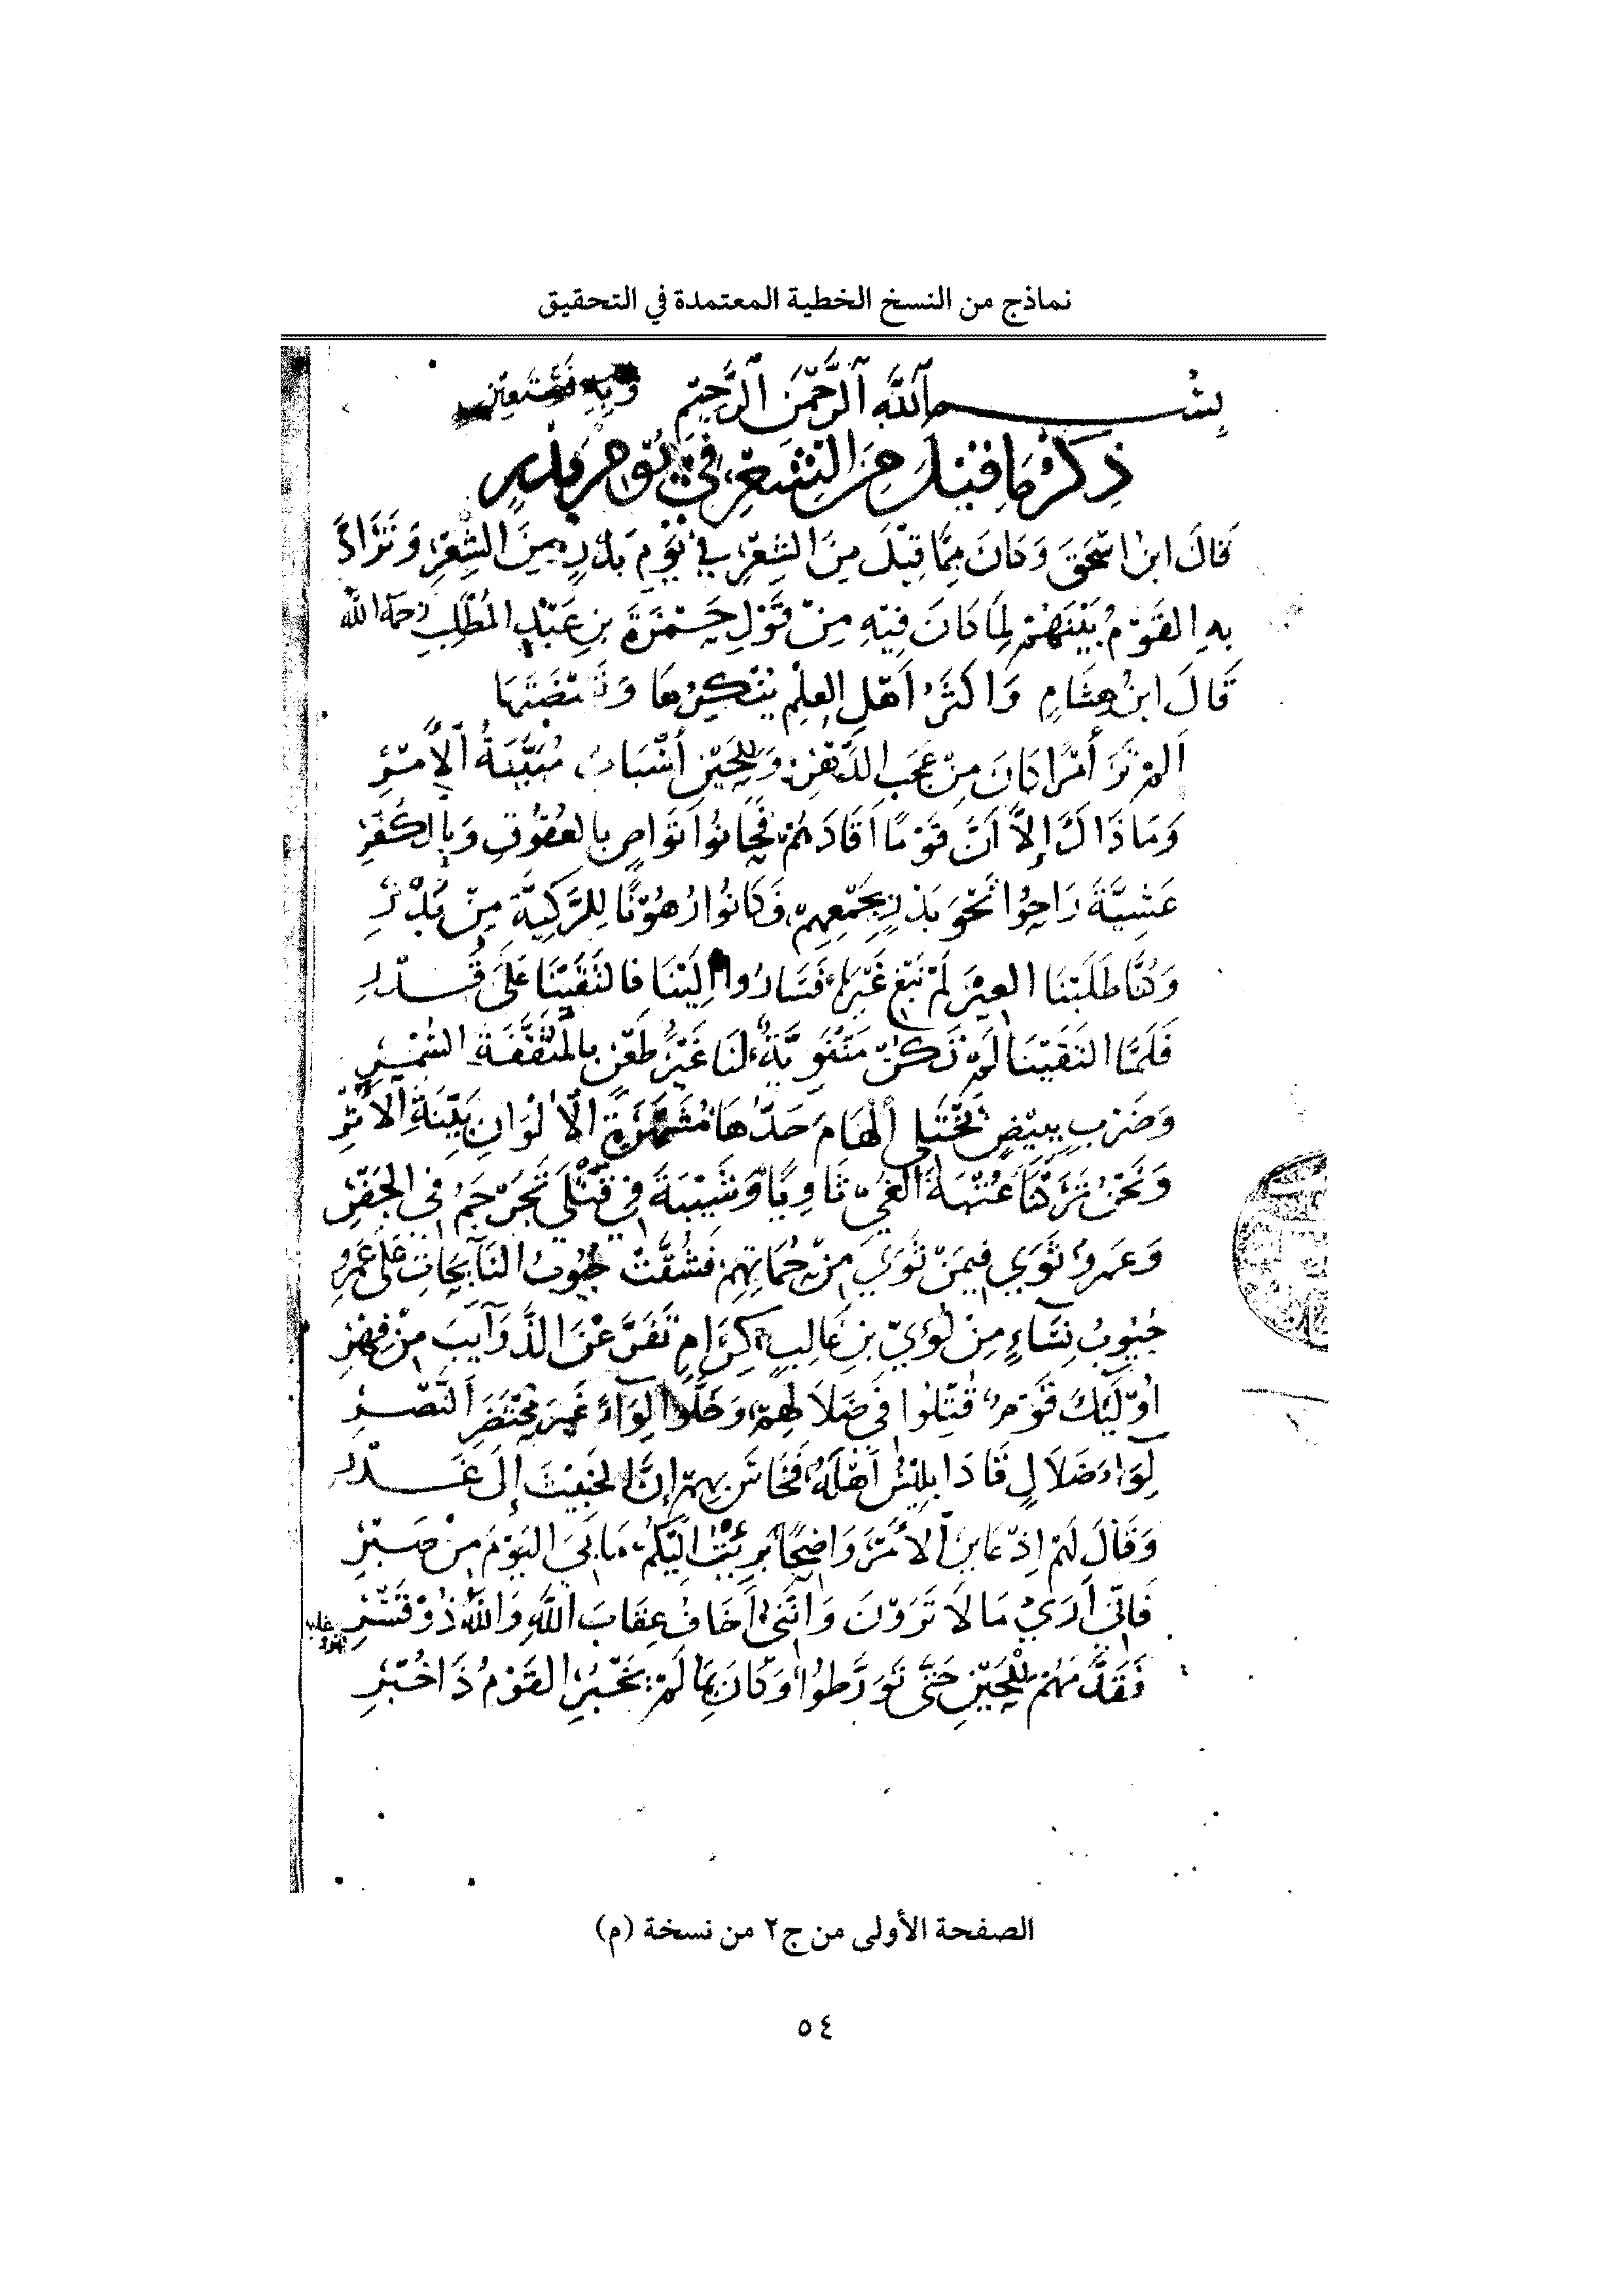 نماذج من النسخ الخطية المعتمدة في التحقيق
بِسْمِ اللَّهِ الرَّحْمَنِ الرَّحِيمِ وَبِهِ نَسْتَعِينُ
ذِكْرُ مَا قِيلَ مِنَ الشِّعْرِ فِي يَوْمِ بَدْرٍ
قَالَ ابنُ اسْحَقَ وَكَانَ مِمَّا قِيْلَ مِنَ الشِّعْرِ في يَوْمِ بَدْرٍ مِنَ الشِّعْرِ وَتَرَادَّ
بِهِ القَوْمُ بَيْنَهُمْ لِمَا كَانَ فِيْهِ مِنْ قَوْلِ حَمْزَةَ بنِ عَبْدِ المُطَّلِبِ رحمه الله
قَالَ ابنُ هِشَامٍ وَاكْثَرُ أَهْلِ العِلْمِ يُنْكِرُهَا وَنَقِيْضَتَهَا
أَلَمْ تَرَ أَمْرًا كَانَ مِنْ عَجَبِ الدَّهْرِ وَلِلْحَيْنِ أَسْبَابٌ مُبَيَّنَةُ الأَمْرِ
وَمَا ذَاكَ إِلاَّ أَنَّ قَوْمًا أَفَادَهُمْ فَحَانُوا تَوَاصٍ بِالعُقُوقِ وَبِالكُفْرِ
عَشِيَّةَ رَاحُوا نَحْوَ بَدْرٍ بِجَمْعِهِمْ فَكَانُوا رُهُوْنًا لِلرَّكِيَّةِ مِنْ بَدْرِ
وَكُنَّا طَلَبْنَا العِيْرَ لَمْ نَبْغِ غَيْرَهَا فَسَارُوا إِلَيْنَا فَالتَقَيْنَا عَلَى قَدْرِ
فَلَمَّا التَقَيْنَا لَمْ تَكُنْ مَثْنَوِيَّةٌ لَنَا غَيْرُ طَعْنٍ بِالمُثَقَّفَةِ السُّمْرِ
وَضَرْبٍ بِبِيْضٍ يَخْتَلِي الْهَامَ حَدُّهَا مُشَهَّرَةِ الأَلْوَانِ بَيِّنَةِ الأُثْرِ
وَنَحْنُ تَرَكْنَا عُتْبَةَ الغَيِّ ثَاوِيًا وَشَيْبَةَ فِي قَتْلَى تَجَرْجَمُ فِي الجَفْرِ
وَعَمرٌو ثَوَى فِيمَنْ ثَوَى مِنْ حُمَاتِهِمْ فَشُقَّتْ جُيُوبُ النَّائِحَاتِ عَلَى عَمْرِو
جُيُوبُ نِسَاءٍ مِنْ لُؤَيِّ بنِ غَالِبٍ كِرَامٍ تَفَرَّعْنَ الذَّوَآيِبَ مِنْ فِهْرِ
اُوْلَئِكَ قَوْمٌ قُتِّلُوا فِي ضَلاَلِهِمْ وَخَلَّوا لِوَاءً غَيرَ مُحْتَضَرِ النَّصْرِ
لِوَاءَ ضَلاَلٍ قَادَ ابلِيْسُ أَهْلَهُ فَخَاسَ بِهِمْ إِنَّ الخَبِيْثَ إِلَى غَدْرِ
وَقَالَ لَهُمْ إِذْ عَايَنَ الأَمْرَ وَاضِحًا بَرِئْتُ إِلَيْكُمْ مَا بِيَ اليَوْمَ مِنْ صَبْرِ
فَإِنِّي أَرَى مَا لاَ تَرَوْنَ وَإِنَّنِي أَخَافُ عِقَابَ اللَّهِ وَاللَّهُ ذُو قَسْرِ
فَقَدَّمَهُمْ لِلْحَيْنِ حَتَّى تَوَرَّطُوا وَكَانَ بِمَا لَمْ يَخْبُرِ القَوْمُ ذَا خُبْرِ
الصفحة الأولى من ج٢ من نسخة (م)
٥٤